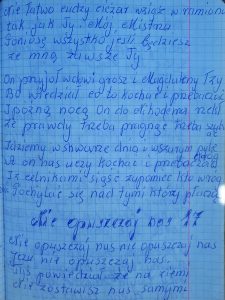 Nie łatwo cudzy ciężar wziąć w ramiona
tak jak Ty Mój Mistrzu
Poniosę wszystko jeśli będziesz
ze mną zawsze Ty
On przyjął wdowi grosz i Magdaleny łzy
Bo wiedział co to kochać i przebaczać
I późną nocą On do Nikodema rzekł
Że prawdy trzeba pragnąć trzeba szukać
Idziemy w skwarze dnia i w szarym pyle dróg
A On nas uczy kochać i przebaczać
I z celnikami siąść zapomnieć kto wróg
Pochylać się nad tymi którzy płaczą
Nie opuszczaj nas 17
Nie opuszczaj nas nie opuszczaj nas
Jezu nie opuszczaj nas.
Tyś powiedział że na ziemi
Nie zostawisz nas samymi